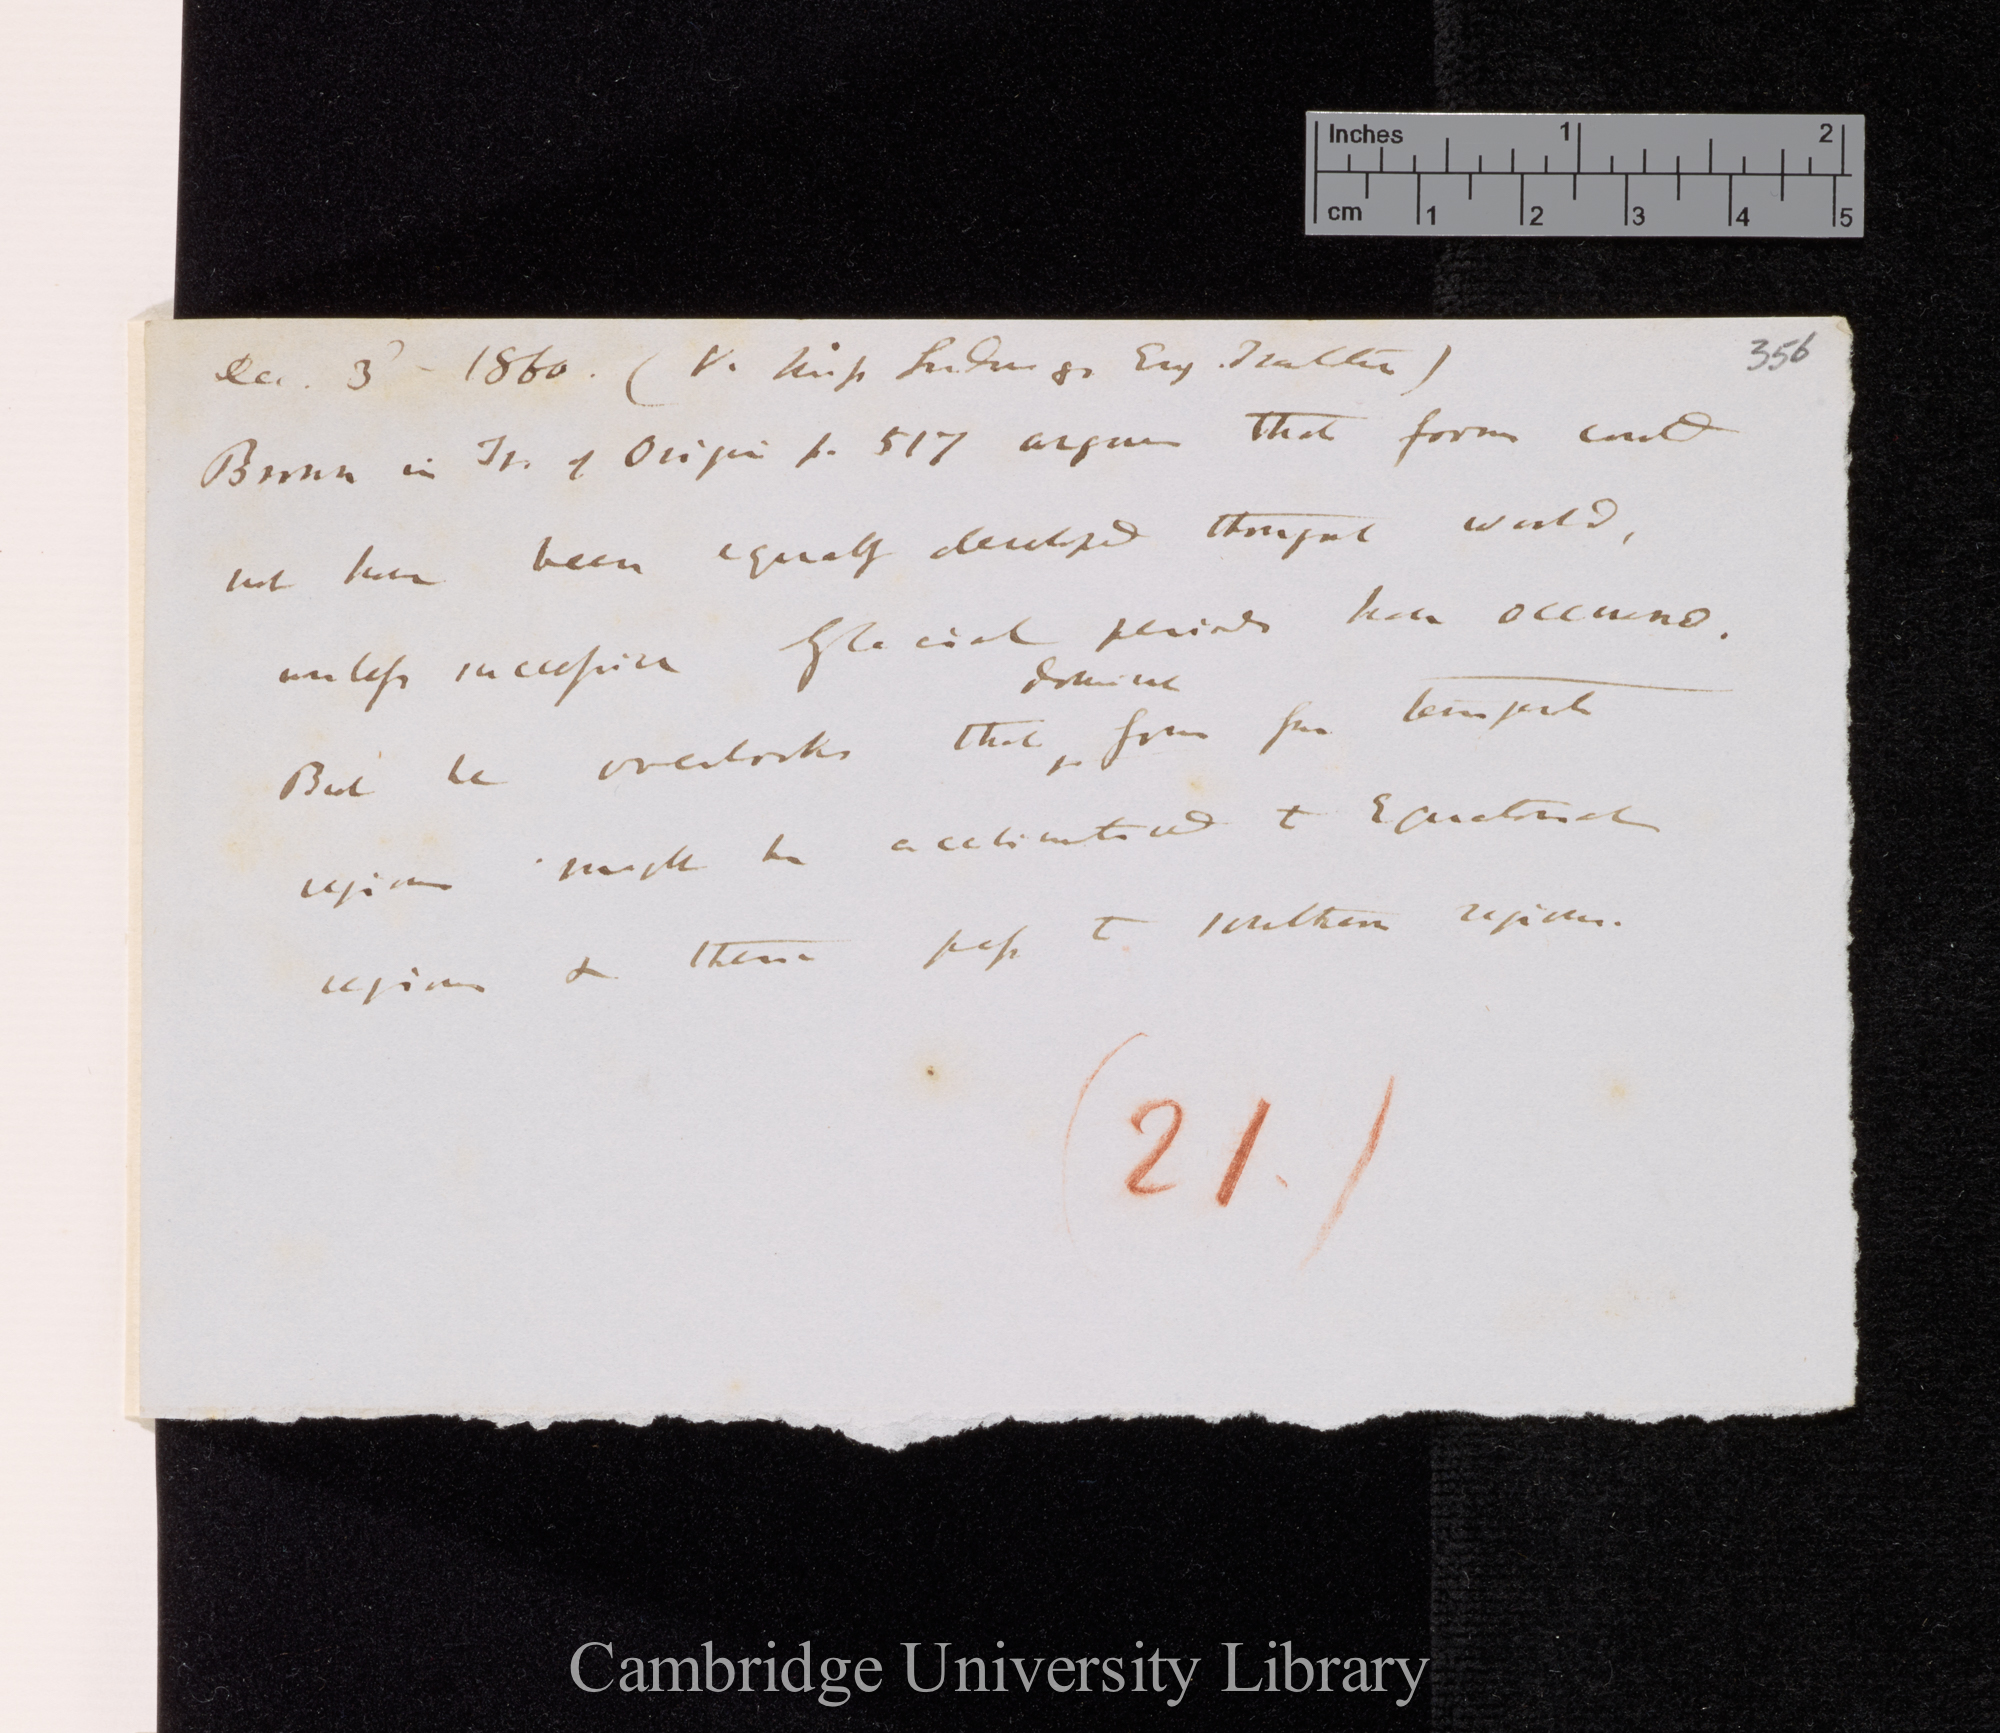 Inches 1 2
cm 1 2 3 4 5
356
Dec. 3d – 1860. (V. Miss Ludwigs Eng. Translation)
Bronn in Tr. of Origin p. 517 argues that forms could
not have been equally developed throughout world,
unless successive Glacial periods have occurred.
But he overlooks that domint forms from temperate
regions might be acclimatised to Equatorial
regions & thence pass to southern regions.
(21.)
Cambridge University Library